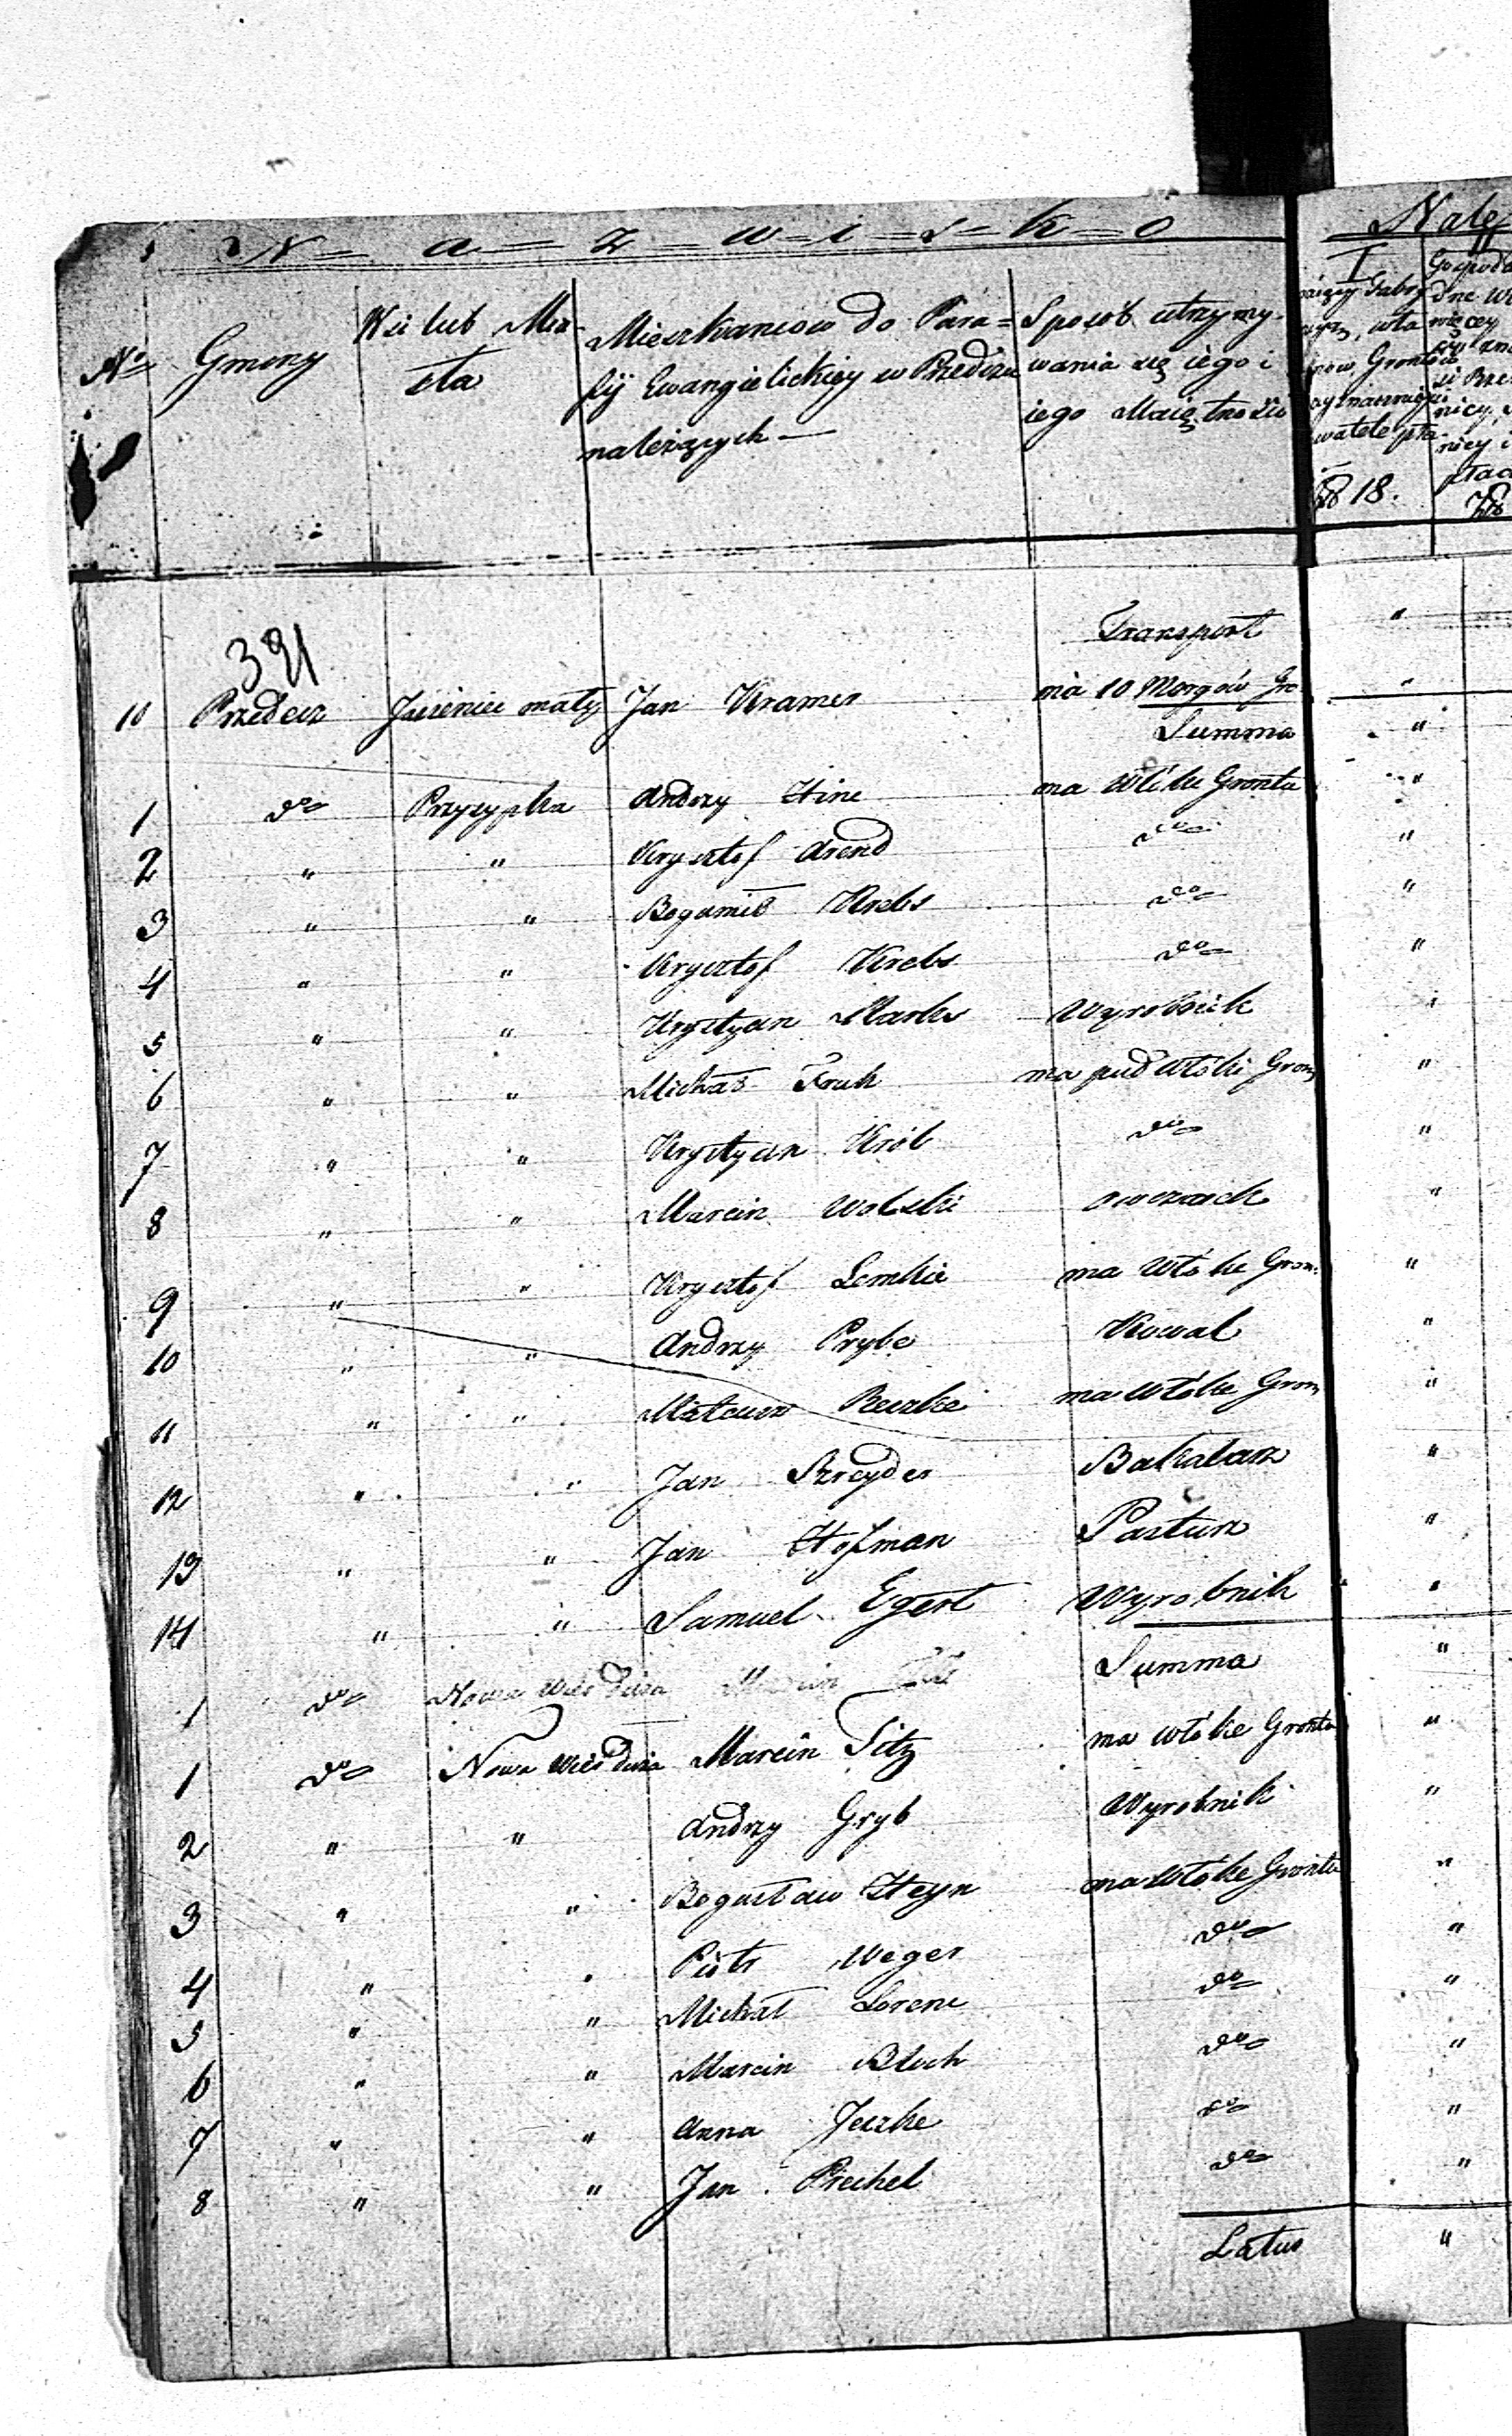 N = a = z = w = i = s = k = o
Nale
No
Gminy
Wsi lub Mia-
sta
Mieszkancow do Para=
fij Ewangielickiey w Przedczu
należących —
Sposób utrzymy-
wania się iego i
iego Maiętności
I
18.
Transport "
391
10 Przedecz Jasieniec mały Jan Kramer ma 10 Morgów Gro "
Summa "
1 do Przysypka Andrzy Hine ma Włóke Grontu "
2 " " Krysztof Arend do "
3 " " Bogumił Krebs do "
4 " " Krysztof Krebs do "
5 " " Krystyan Marks Wyrobnik "
6 " " Michał Fruk ma puł Włóki Gron "
7 " " Krystyan Król do "
8 " " Marcin Wolski owczarek "
9 " " Krysztof Lemkie ma Włóke Gron "
10 " " Andrzy Prybe Kowal "
11 " " Mateusz Reczke ma Włóke Gron "
12 " " Jan Szreyder Bakalarz "
13 " " Jan Hofman Pastuz "
14 " " Samuel Egert Wyrobnik "
Summa "
1 do Nowa Wieś Duża Marcin
1 do Nowa Wieś Duża Marcin Sitz ma włóke Grontu "
2 " " Andrzy Gryb Wyrobnik "
3 " " Bogusław Heyn ma Włóke Grontu "
4 " " Piotr Weger do "
5 " " Michał Lorenc do "
6 " " Marcin Bloch do "
7 " " Anna Jeszke do "
8 " " Jan Prechel do "
Latus "